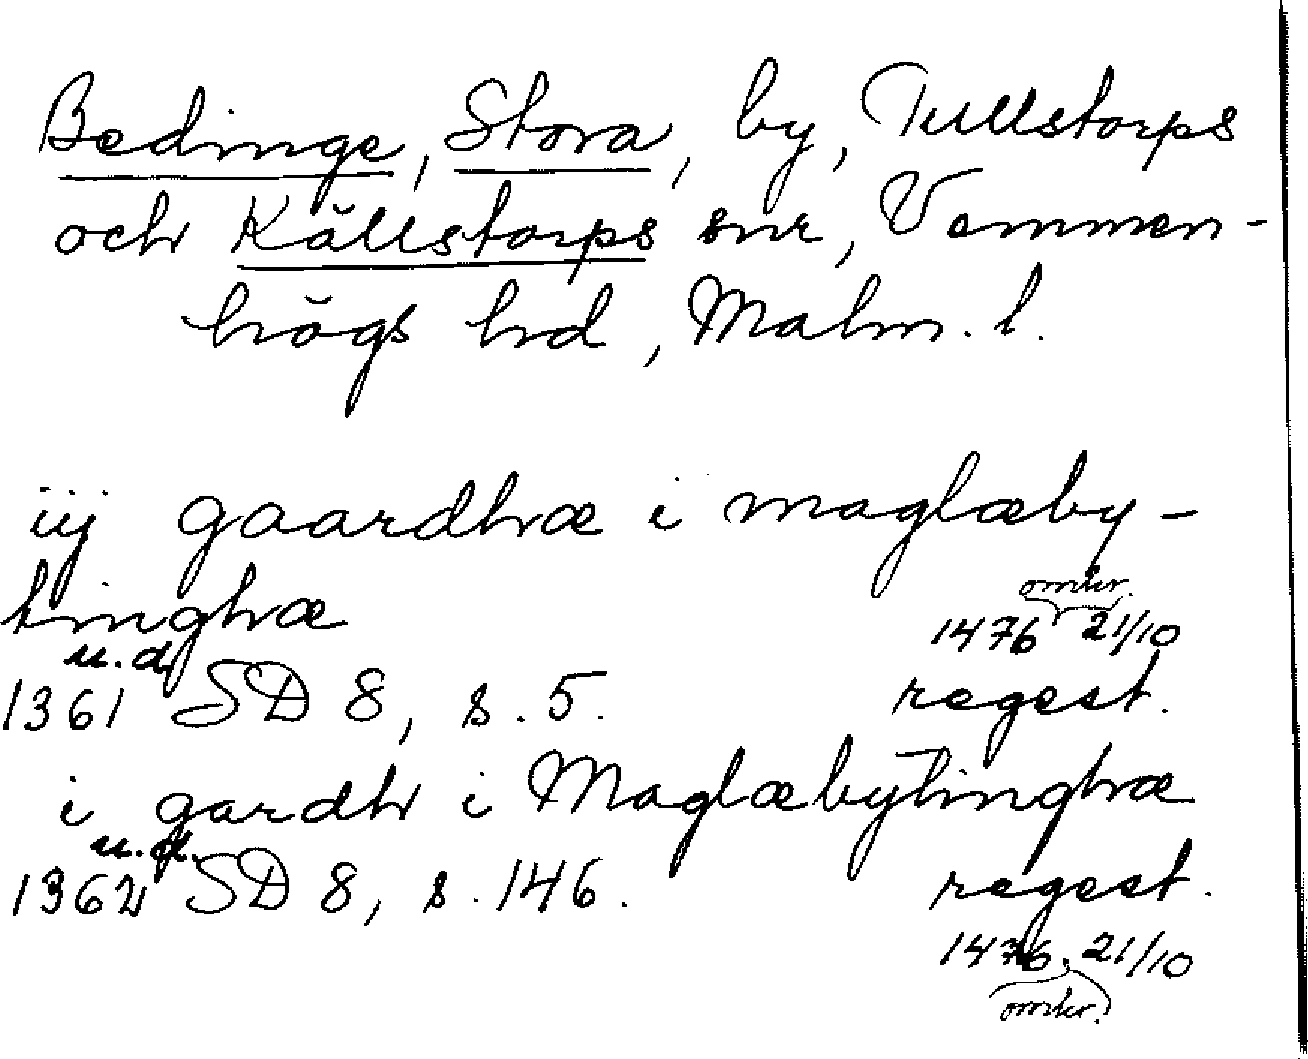 Bedinge, Stora, by, Tullstorps
och Källstorps snr, Vemmen-
högs hd, Malm. l.
iij gaardhæ i maglæby-
tinghæ
omkr.
1476 21/10
u.d.
1361 SD 8, s. 5. regest.
i gardh i Maglæbytinghæ
u.d.
1362 SD 8, s. 146. regest.
1476. 21/10
omkr.